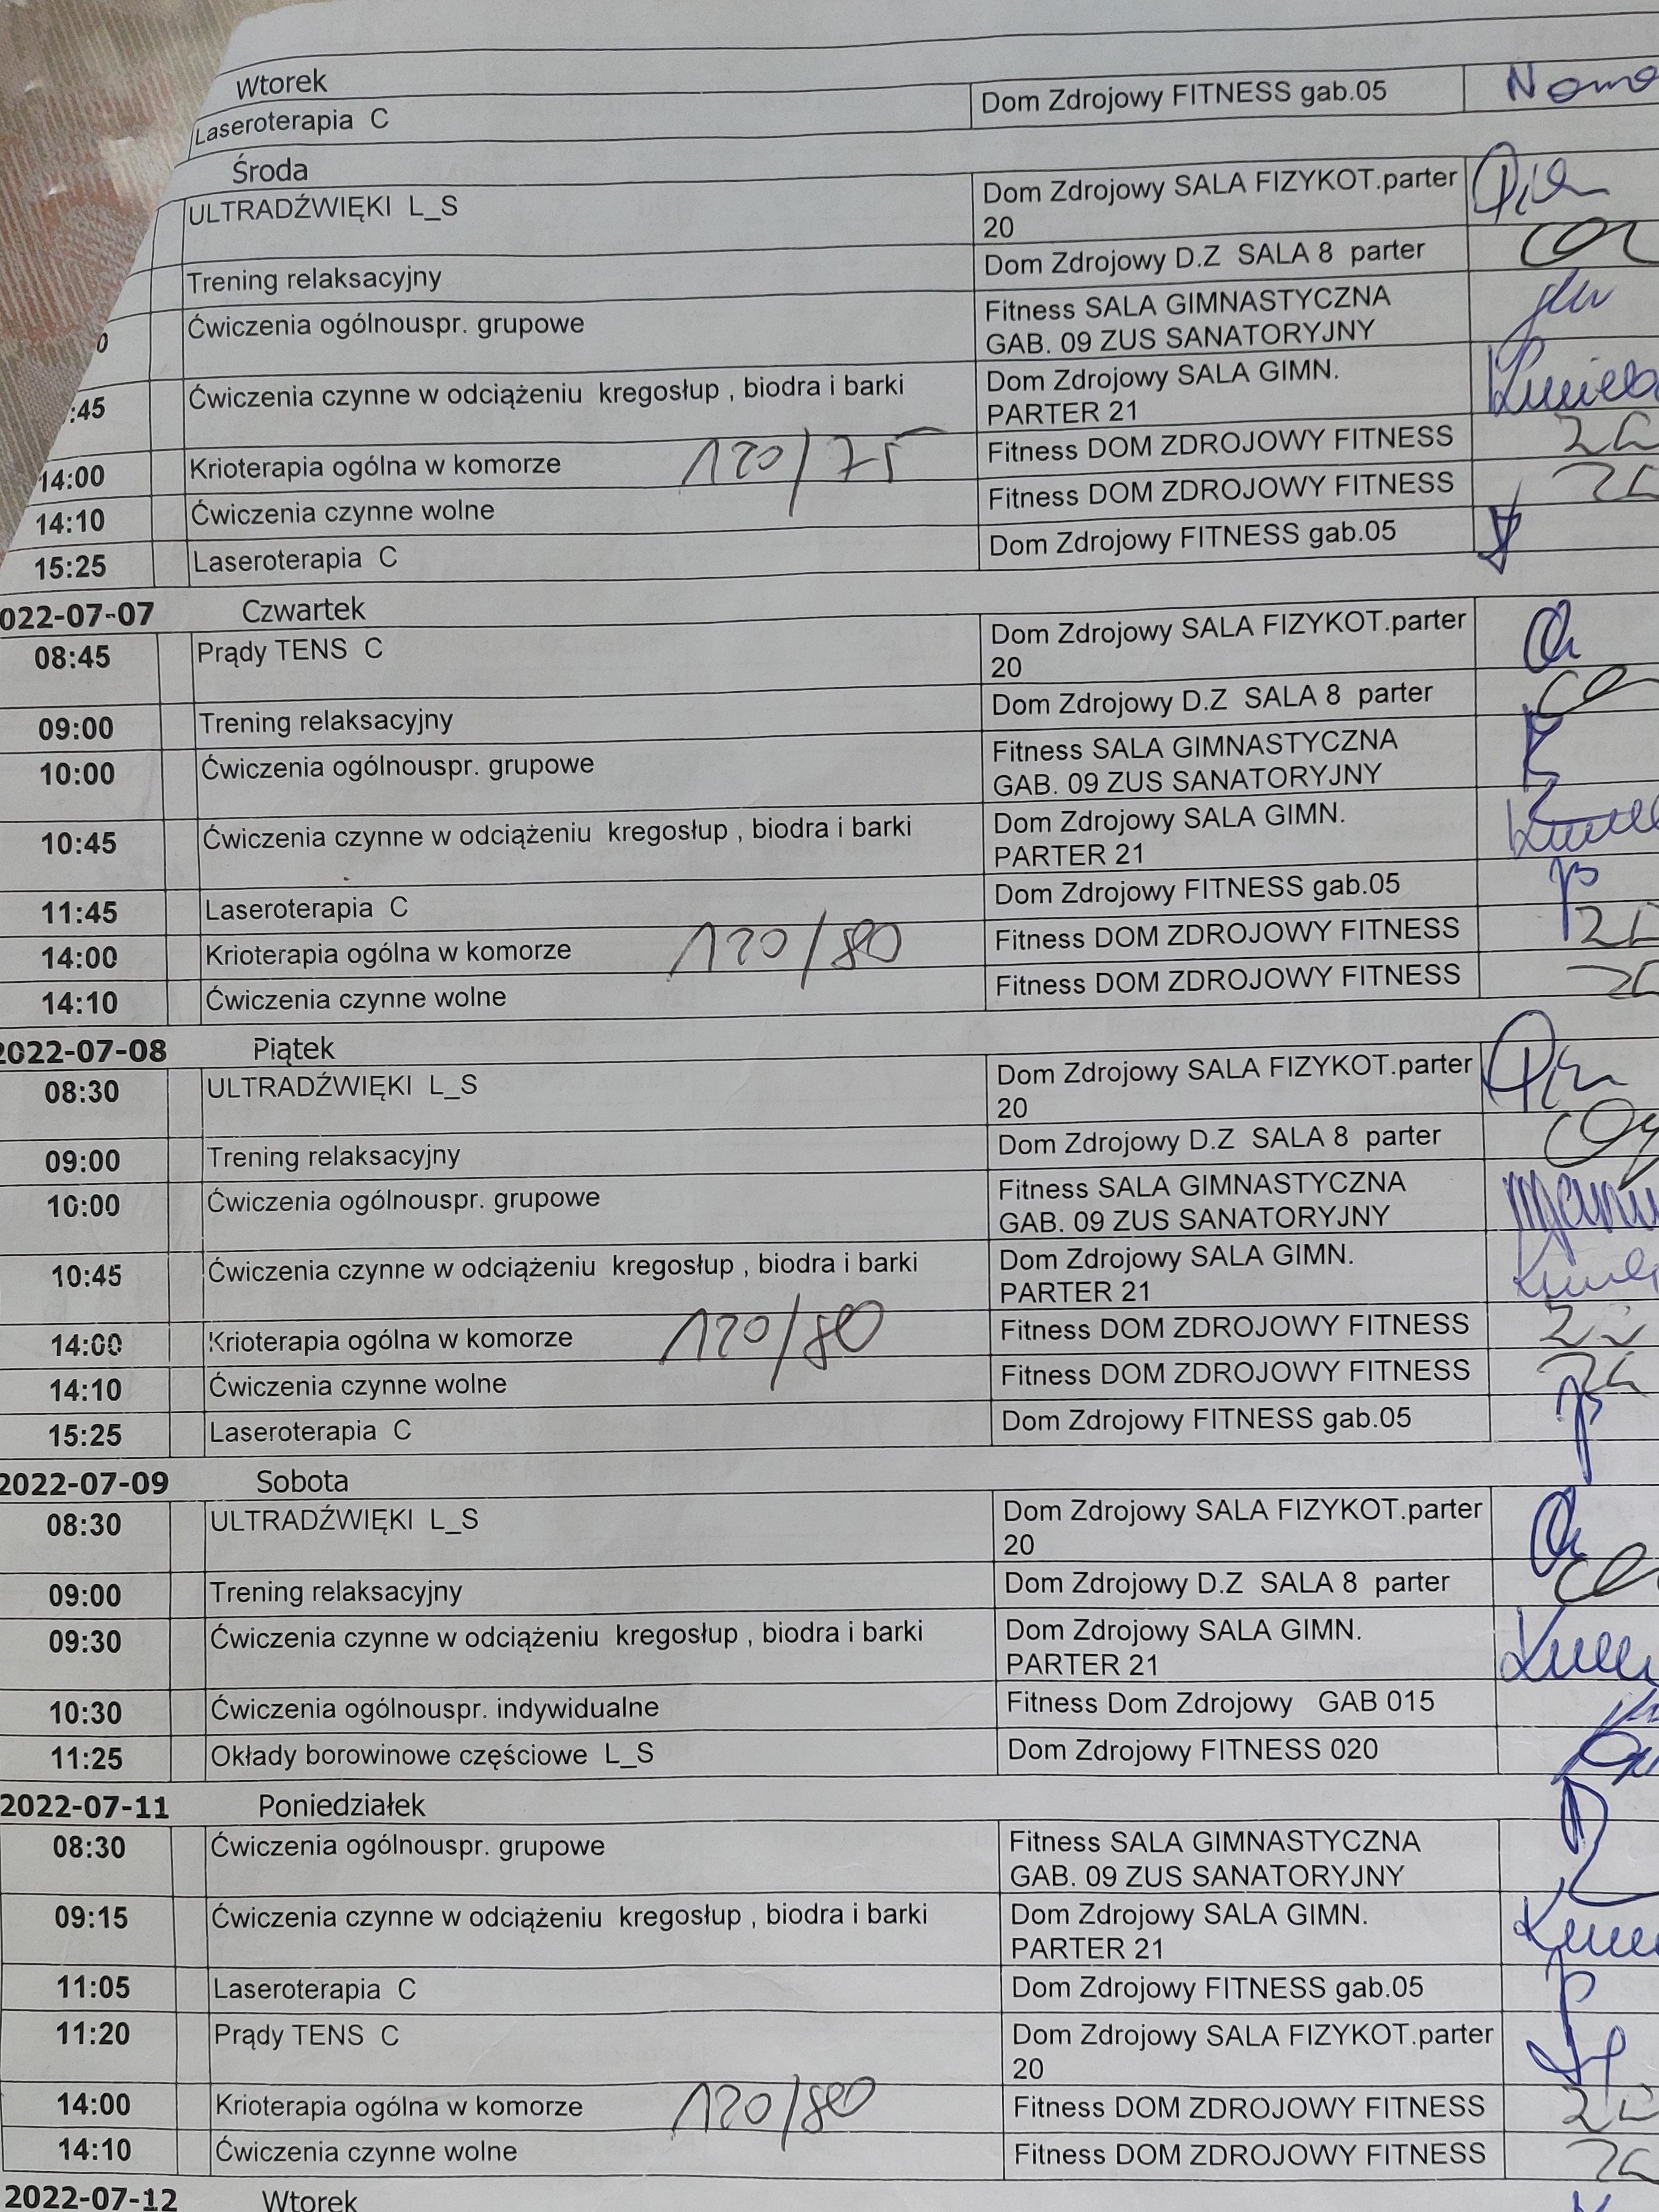 Wtorek
Laseroterapia C Dom Zdrojowy FITNESS gab.05
Środa
ULTRADŹWIĘKI L_S Dom Zdrojowy SALA FIZYKOT.parter
20
Trening relaksacyjny Dom Zdrojowy D.Z SALA 8 parter
0 Ćwiczenia ogólnouspr. grupowe Fitness SALA GIMNASTYCZNA
GAB. 09 ZUS SANATORYJNY
:45 Ćwiczenia czynne w odciążeniu kregosłup , biodra i barki Dom Zdrojowy SALA GIMN.
PARTER 21
14:00 Krioterapia ogólna w komorze 120/75 Fitness DOM ZDROJOWY FITNESS
14:10 Ćwiczenia czynne wolne Fitness DOM ZDROJOWY FITNESS
15:25 Laseroterapia C Dom Zdrojowy FITNESS gab.05
022-07-07 Czwartek
08:45 Prądy TENS C Dom Zdrojowy SALA FIZYKOT.parter
20
09:00 Trening relaksacyjny Dom Zdrojowy D.Z SALA 8 parter
10:00 Ćwiczenia ogólnouspr. grupowe Fitness SALA GIMNASTYCZNA
GAB. 09 ZUS SANATORYJNY
10:45 Ćwiczenia czynne w odciążeniu kregosłup , biodra i barki Dom Zdrojowy SALA GIMN.
PARTER 21
11:45 Laseroterapia C Dom Zdrojowy FITNESS gab.05
14:00 Krioterapia ogólna w komorze 120/80 Fitness DOM ZDROJOWY FITNESS
14:10 Ćwiczenia czynne wolne Fitness DOM ZDROJOWY FITNESS
2022-07-08 Piątek
08:30 ULTRADŹWIĘKI L_S Dom Zdrojowy SALA FIZYKOT.parter
20
09:00 Trening relaksacyjny Dom Zdrojowy D.Z SALA 8 parter
10:00 Ćwiczenia ogólnouspr. grupowe Fitness SALA GIMNASTYCZNA
GAB. 09 ZUS SANATORYJNY
10:45 Ćwiczenia czynne w odciążeniu kregosłup , biodra i barki Dom Zdrojowy SALA GIMN.
PARTER 21
14:00 Krioterapia ogólna w komorze 120/80 Fitness DOM ZDROJOWY FITNESS
14:10 Ćwiczenia czynne wolne Fitness DOM ZDROJOWY FITNESS
15:25 Laseroterapia C Dom Zdrojowy FITNESS gab.05
2022-07-09 Sobota
08:30 ULTRADŹWIĘKI L_S Dom Zdrojowy SALA FIZYKOT.parter
20
09:00 Trening relaksacyjny Dom Zdrojowy D.Z SALA 8 parter
09:30 Ćwiczenia czynne w odciążeniu kregosłup , biodra i barki Dom Zdrojowy SALA GIMN.
PARTER 21
10:30 Ćwiczenia ogólnouspr. indywidualne Fitness Dom Zdrojowy GAB 015
11:25 Okłady borowinowe częściowe L_S Dom Zdrojowy FITNESS 020
2022-07-11 Poniedziałek
08:30 Ćwiczenia ogólnouspr. grupowe Fitness SALA GIMNASTYCZNA
GAB. 09 ZUS SANATORYJNY
09:15 Ćwiczenia czynne w odciążeniu kregosłup , biodra i barki Dom Zdrojowy SALA GIMN.
PARTER 21
11:05 Laseroterapia C Dom Zdrojowy FITNESS gab.05
11:20 Prądy TENS C Dom Zdrojowy SALA FIZYKOT.parter
20
14:00 Krioterapia ogólna w komorze 120/80 Fitness DOM ZDROJOWY FITNESS
14:10 Ćwiczenia czynne wolne Fitness DOM ZDROJOWY FITNESS
2022-07-12 Wtorek